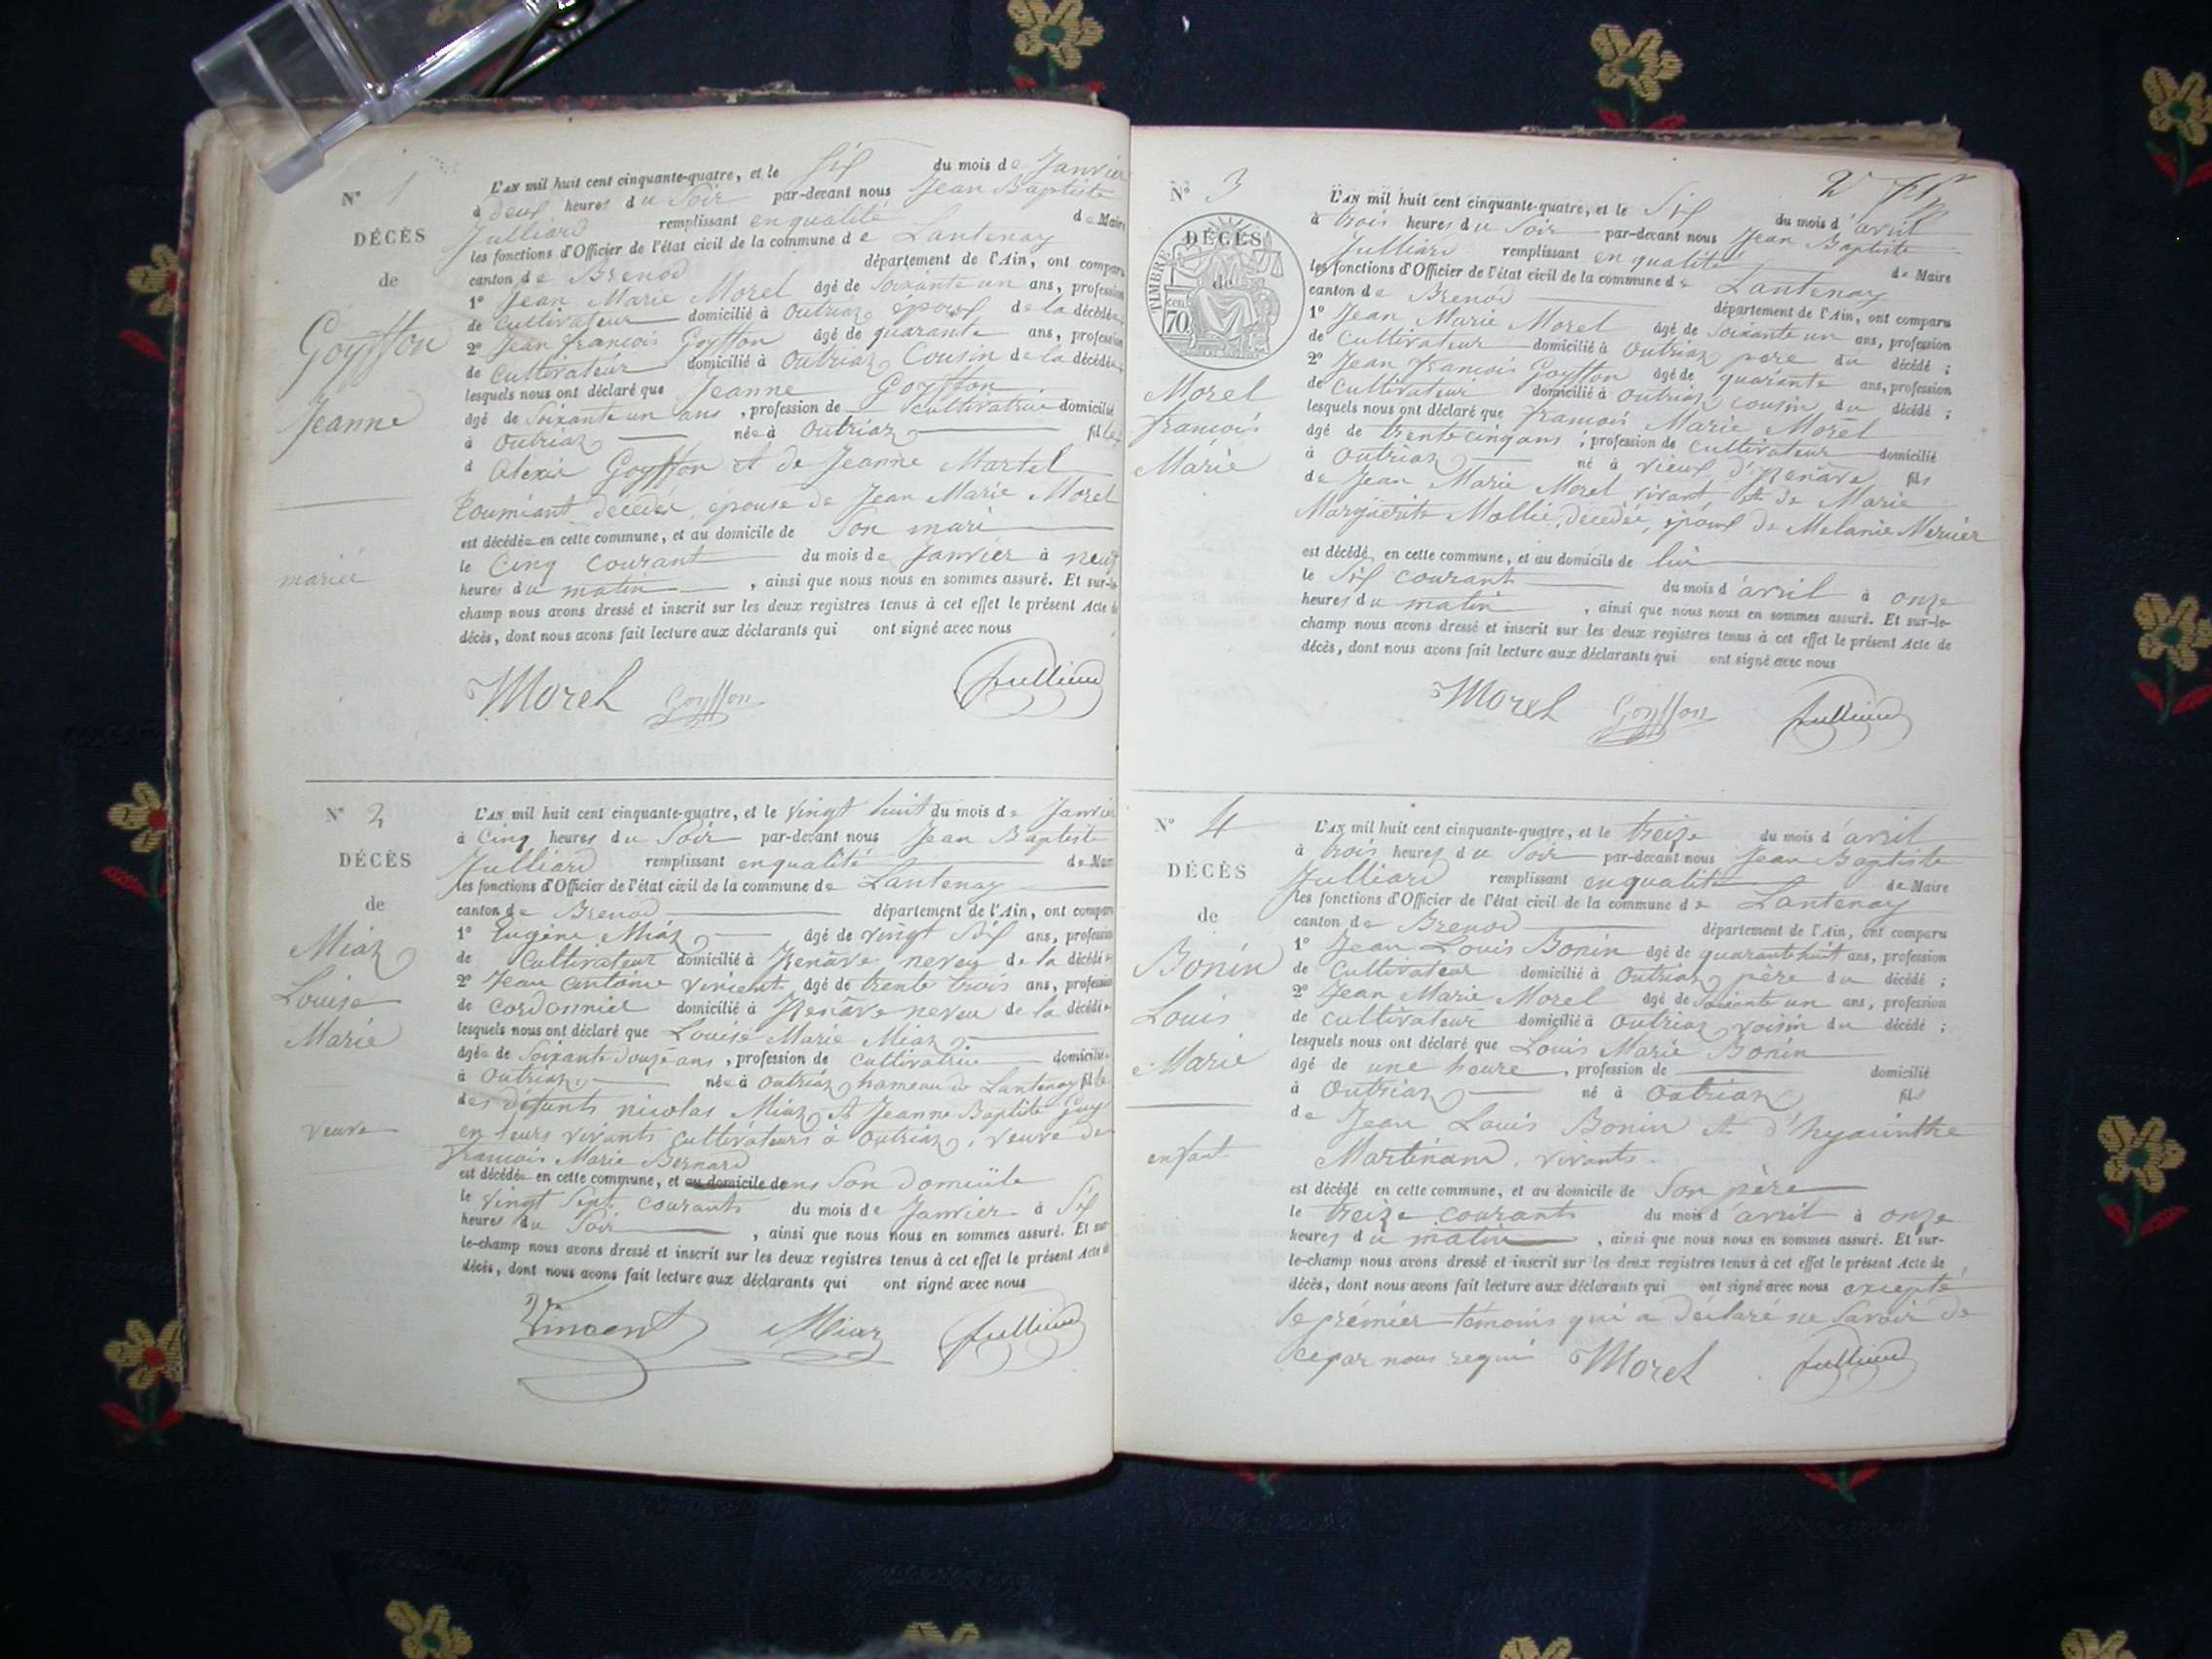 N° 1
DÉCÈS
de
Goyffon
Jeanne
mariée
L'AN mil huit cent cinquante-quatre, et le Six du mois de Janvier
à deux heures du Soir par-devant nous Jean Baptiste
Julliard remplissant en qualité de Maire
les fonctions d'Officier de l'état civil de la commune de Lantenay
canton de Brenod département de l'Ain, ont comparu
1° Jean Marie Morel âgé de Soixante un ans, profession
de Cultivateur domicilié à Outriaz époux de la décédée
2° Jean françois Goyffon âgé de quarante ans, profession
de Cultivateur domicilié à Outriaz Cousin de la décédée
lesquels nous ont déclaré que Jeanne Goyffon
âgé de Soixante un ans, profession de Cultivatrice domicilié
à Outriaz née à Outriaz fille
d'Alexis Goyffon et de Jeanne Martel
décédés, épouse de Jean Marie Morel
est décédée en cette commune, et au domicile de Son mari
le Cinq courant du mois de Janvier à neuf
heures du matin, ainsi que nous nous en sommes assuré. Et sur-le-
champ nous avons dressé et inscrit sur les deux registres tenus à cet effet le présent Acte de
décès, dont nous avons fait lecture aux déclarants qui ont signé avec nous
Morel Goyffon Julliard
N° 2
DÉCÈS
de
Miaz
Louise
Marie
veuve
L'AN mil huit cent cinquante-quatre, et le vingt huit du mois de Janvier
à Cinq heures du Soir par-devant nous Jean Baptiste
Julliard remplissant en qualité de Maire
les fonctions d'Officier de l'état civil de la commune de Lantenay
canton de Brenod département de l'Ain, ont comparu
1° Eugène Miaz âgé de vingt Six ans, profession
de Cultivateur domicilié à Izenave neveu de la décédée
2° Jean Antoine Vincent, âgé de trente trois ans, profession
de cordonnier domicilié à Izenave neveu de la décédée
lesquels nous ont déclaré que Louise Marie Miaz
âgée de Soixante douze ans, profession de Cultivatrice domiciliée
à Outriaz née à Outriaz hameau de Lantenay fille
des défunts nicolas Miaz et Jeanne Baptite Guy
en leurs vivants cultivateurs à Outriaz, veuve de
françois Marie Bernard
est décédée en cette commune, et au domicile dans Son domicile
le vingt Sept courant du mois de Janvier à Six
heures du Soir, ainsi que nous nous en sommes assuré. Et sur-
le-champ nous avons dressé et inscrit sur les deux registres tenus à cet effet le présent Acte de
décès, dont nous avons fait lecture aux déclarants qui ont signé avec nous
Vincent Miaz Julliard
2
N° 3
DÉCÈS
de
TIMBRE
cent 70
Morel
françois
Marie
L'AN mil huit cent cinquante-quatre, et le Six du mois d'avril
à trois heures du Soir par-devant nous Jean Baptiste
Julliard remplissant en qualité de Maire
les fonctions d'Officier de l'état civil de la commune de Lantenay
canton de Brenod département de l'Ain, ont comparu
1° Jean Marie Morel âgé de Soixante un ans, profession
de Cultivateur domicilié à Outriaz père du décédé ;
2° Jean françois Goyffon âgé de quarante ans, profession
de cultivateur domicilié à Outriaz cousin du décédé ;
lesquels nous ont déclaré que françois Marie Morel
âgé de trente cinq ans, profession de cultivateur domicilié
à Outriaz né à vieux d'Izenave fils
de Jean Marie Morel vivant, et de Marie
Marguerite Mollie, décédée, époux de Melanie Mercier
est décédé en cette commune, et au domicile de lui
le Six courant du mois d'avril à onze
heures du matin, ainsi que nous nous en sommes assuré. Et sur-le-
champ nous avons dressé et inscrit sur les deux registres tenus à cet effet le présent Acte de
décès, dont nous avons fait lecture aux déclarants qui ont signé avec nous
Morel Goyffon Julliard
N° 4
DÉCÈS
de
Bonin
Louis
Marie
enfant
L'AN mil huit cent cinquante-quatre, et le treize du mois d'avril
à trois heures du Soir par-devant nous Jean Baptiste
Julliard remplissant en qualité de Maire
les fonctions d'Officier de l'état civil de la commune de Lantenay
canton de Brenod département de l'Ain, ont comparu
1° Jean Louis Bonin âgé de quarante huit ans, profession
de Cultivateur domicilié à Outriaz père du décédé ;
2° Jean Marie Morel âgé de Soixante un ans, profession
de cultivateur domicilié à Outriaz voisin du décédé ;
lesquels nous ont déclaré que Louis Marie Bonin
âgé de une heure, profession de domicilié
à Outriaz né à Outriaz fils
de Jean Louis Bonin et d'hyacinthe
Martinand, vivants.
est décédé en cette commune, et au domicile de Son père
le treize courant du mois d'avril à onze
heures du matin, ainsi que nous nous en sommes assuré. Et sur-
le-champ nous avons dressé et inscrit sur les deux registres tenus à cet effet le présent Acte de
décès, dont nous avons fait lecture aux déclarants qui ont signé avec nous excepté
le prémier témoins qui a déclaré ne Savoir de
ce par nous requi Morel Julliard